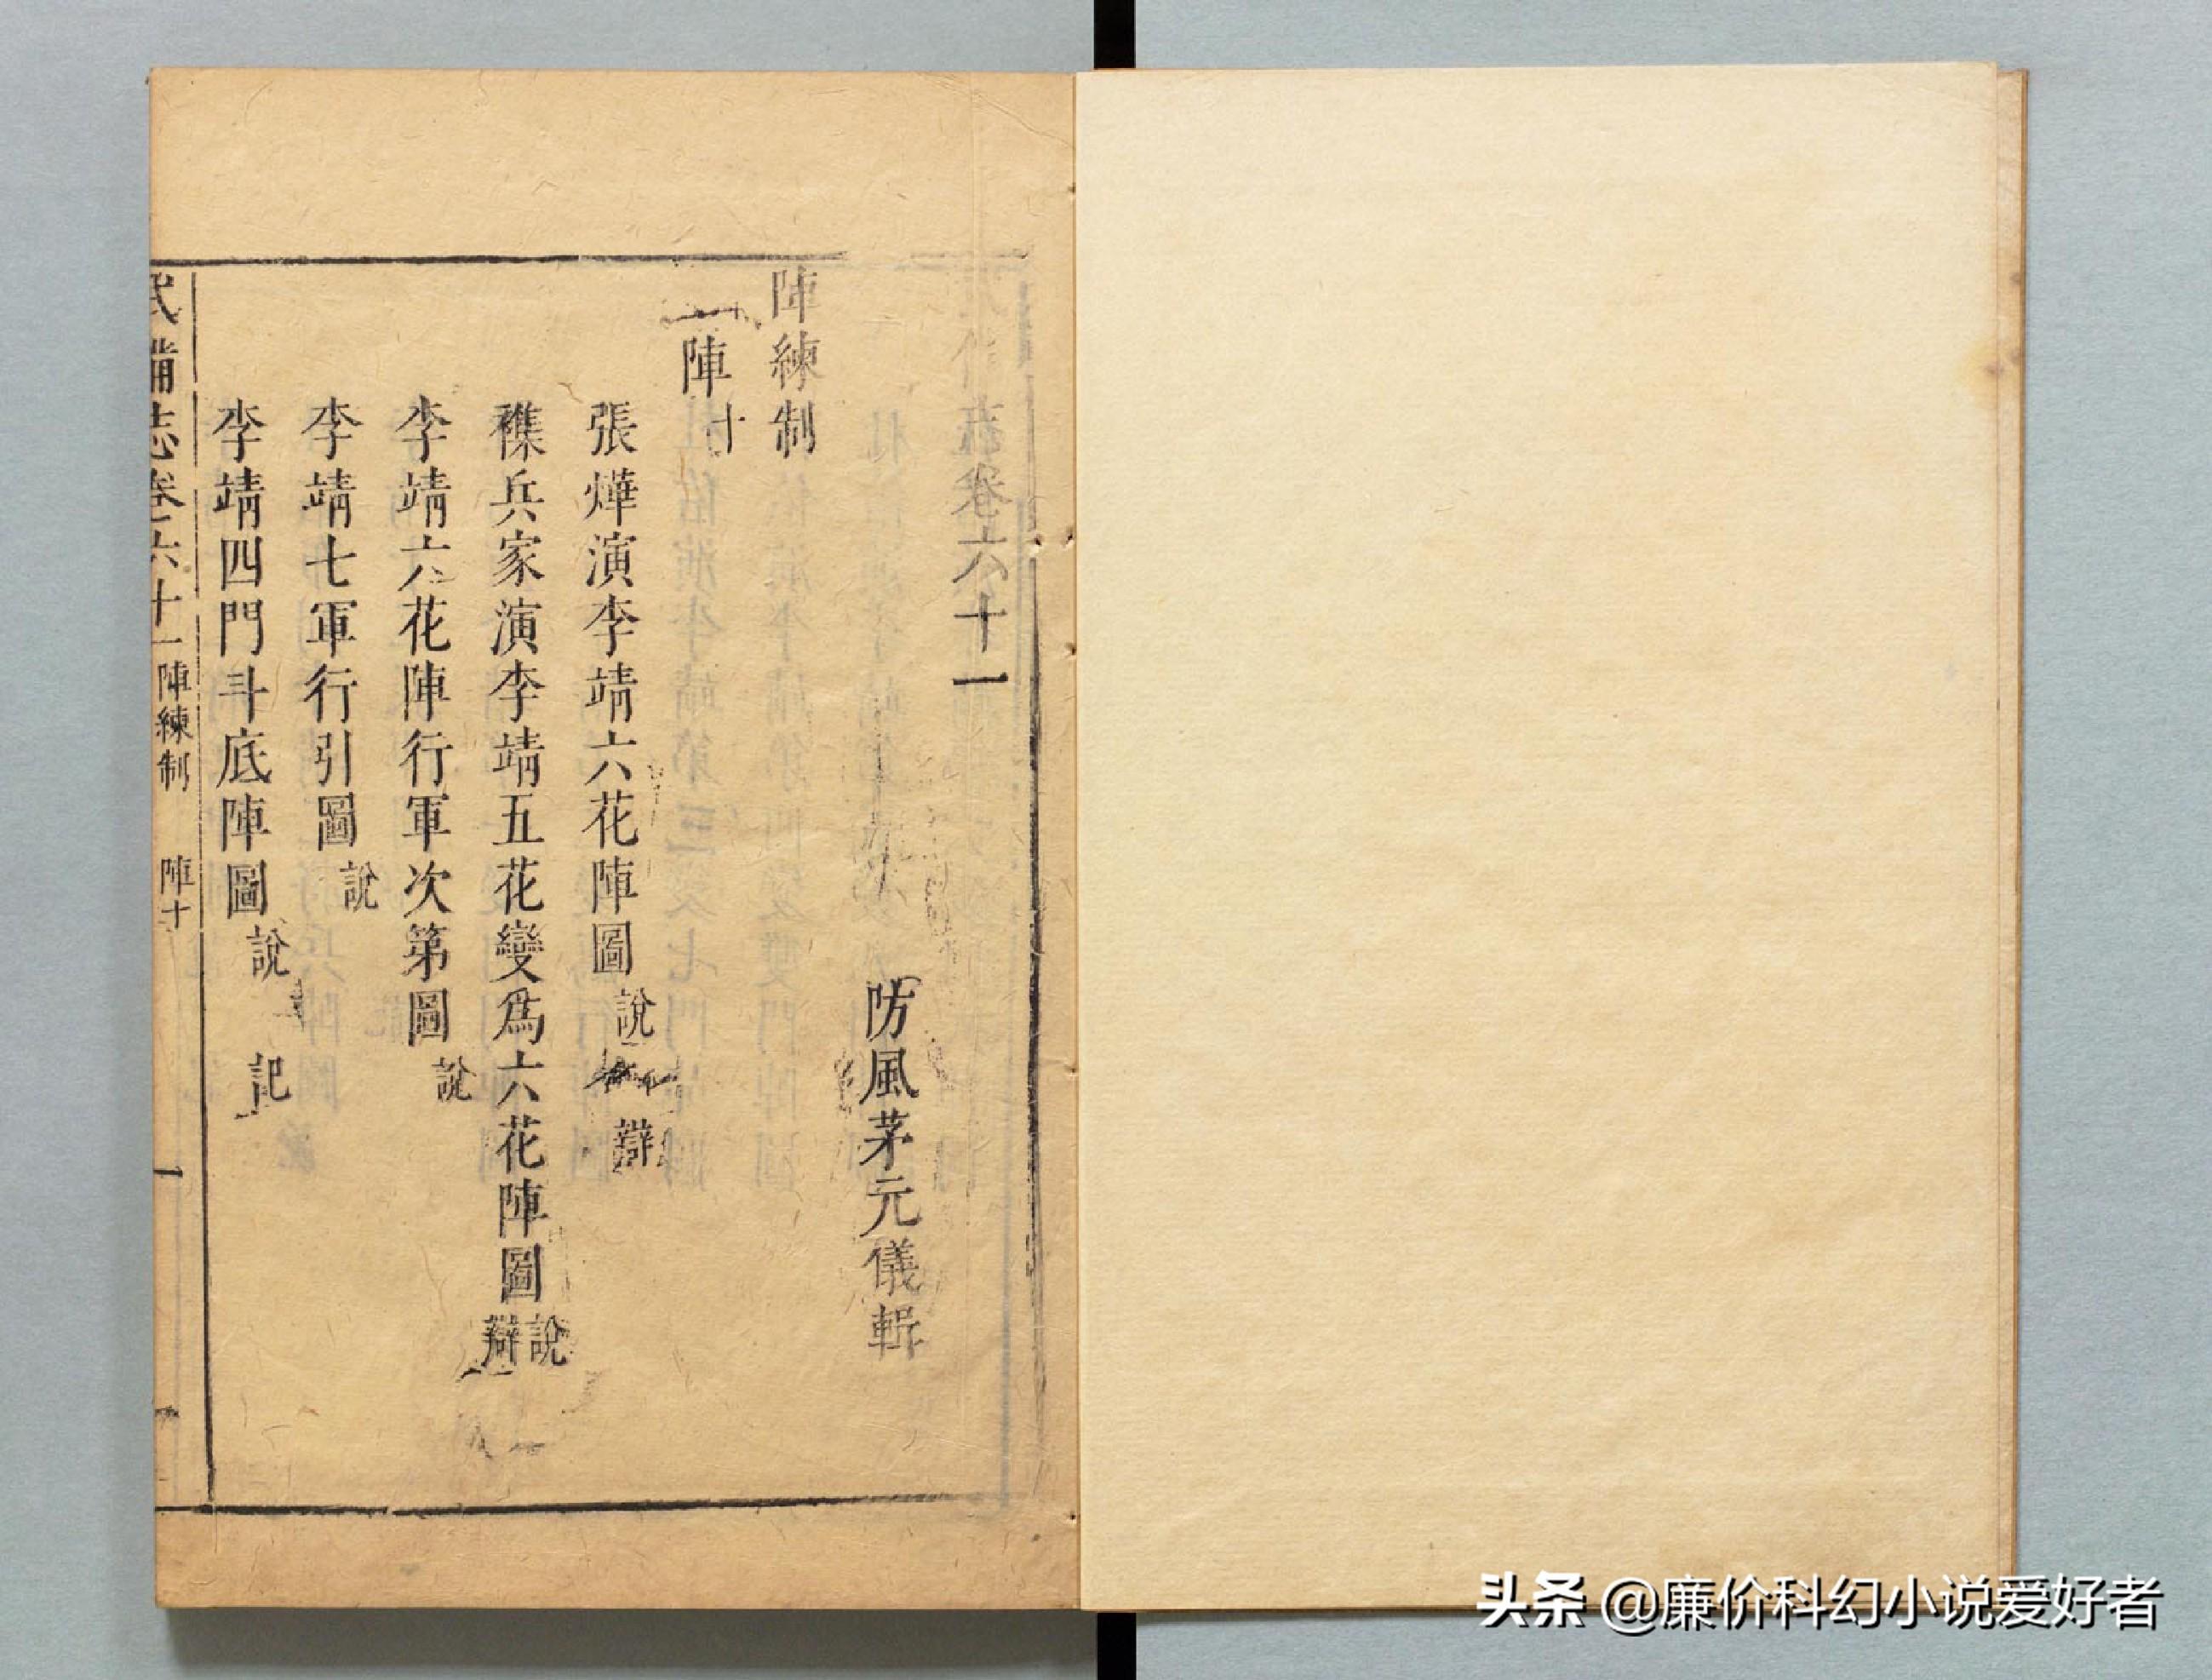 卷六十一
防風茅元儀輯
陣練制
陣十
張燁演李靖六花陣圖 說 辯
襍兵家演李靖五花變爲六花陣圖 說 辯
李靖六花陣行軍次第圖 說
李靖七軍行引圖 說
李靖四門斗底陣圖 說 記
武備志卷六十一 陣練制 陣十 一
头条 @廉价科幻小说爱好者